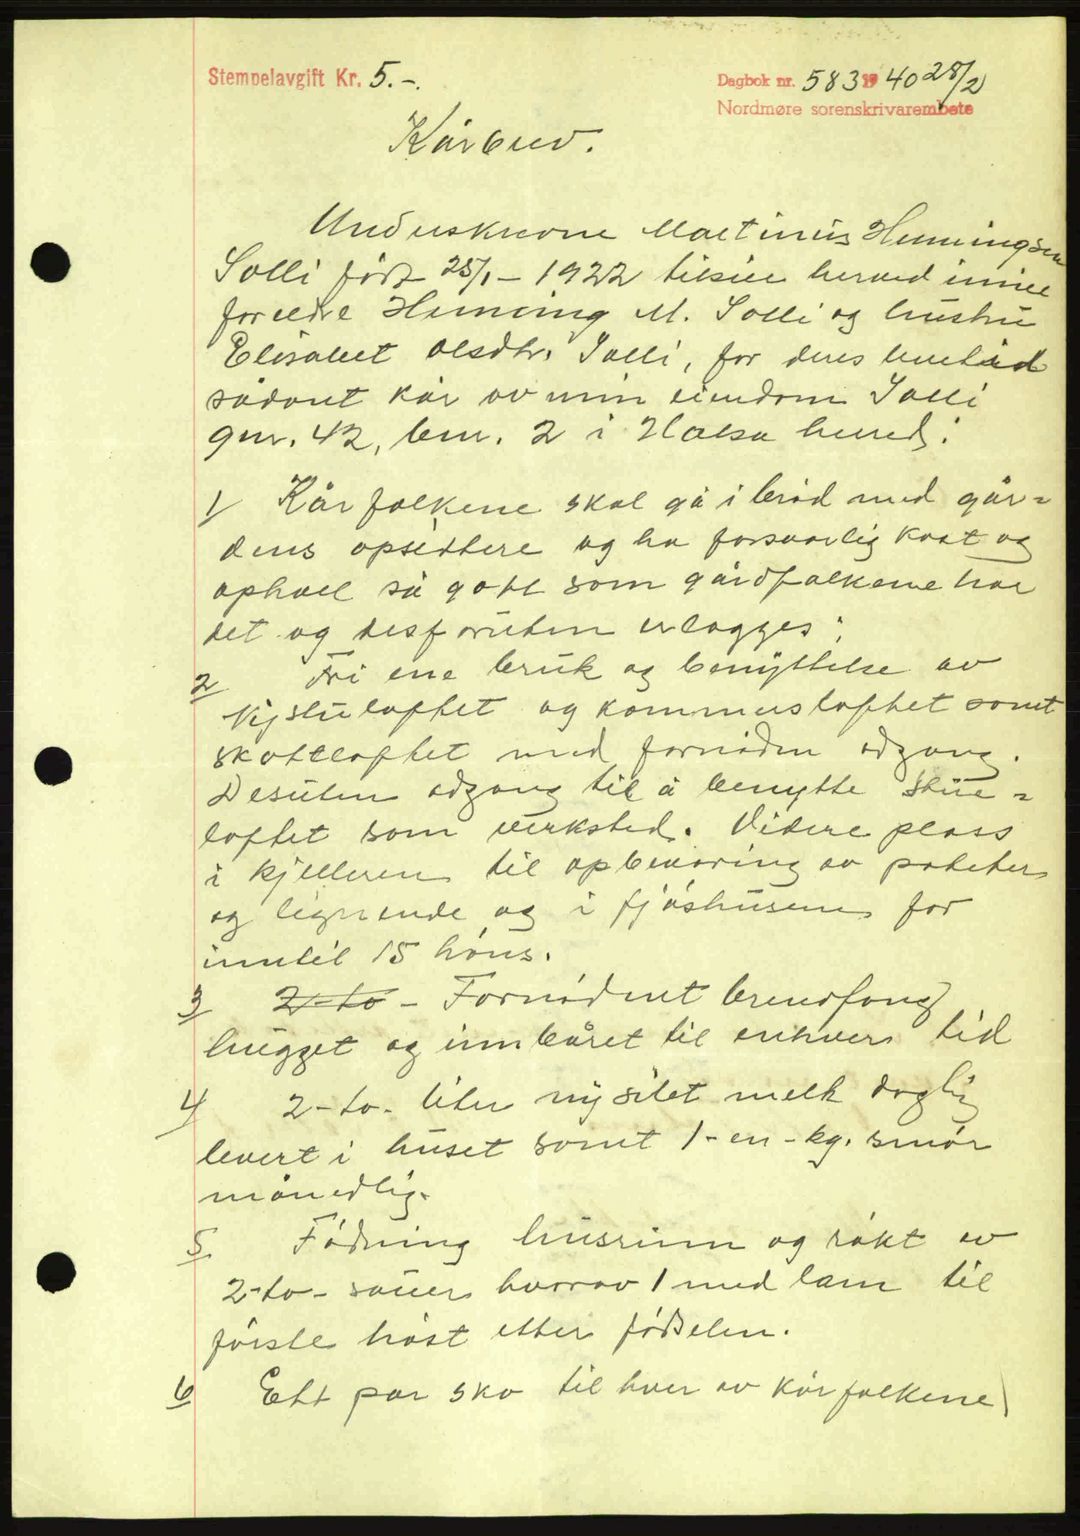 Stempelavgift Kr. 5.-.
Dagbok nr. 583 19 40 28/2
Nordmøre sorenskrivarembete
Kårbrev.
Underskrevne Martinus Henningsen
Solli født 25/1 - 1922 tilsier herved mine
foreldre Henning M. Solli og hustru
Elisabet Olsdtr. Solli, for deres levetid
sådant kår av min eiendom Solli
gnr. 42, bnr. 2 i Halsa herred:
1/ Kårfolkene skal gå i brød med går-
dens opsittere og ha forsvarlig kost og
ophoel så godt som gårdfolkene har
det og desforuten erlegges:
2 Fri ene bruk og benyttelse av
Nystuloftet og kammersloftet samt
skottloftet med fornøden adgang.
Desuten adgang til å benytte stue-
loftet som verksted. Videre plass
i kjelleren til opbevaring av poteter
og lignende og i fjøshusene for
inntil 15 høns.
3/ 2-to- Fornødent brendfang
hugget og innbåret til enhver tid
4/ 2-to- liter nysilet melk daglig
levert i huset samt 1-en-kg. smør
månedlig.
5. Fødning husrum og røkt av
2-to- sauer hvorav 1 med lam til
første høst etter fødselen.
6 Ett par sko til hver av kårfolkene